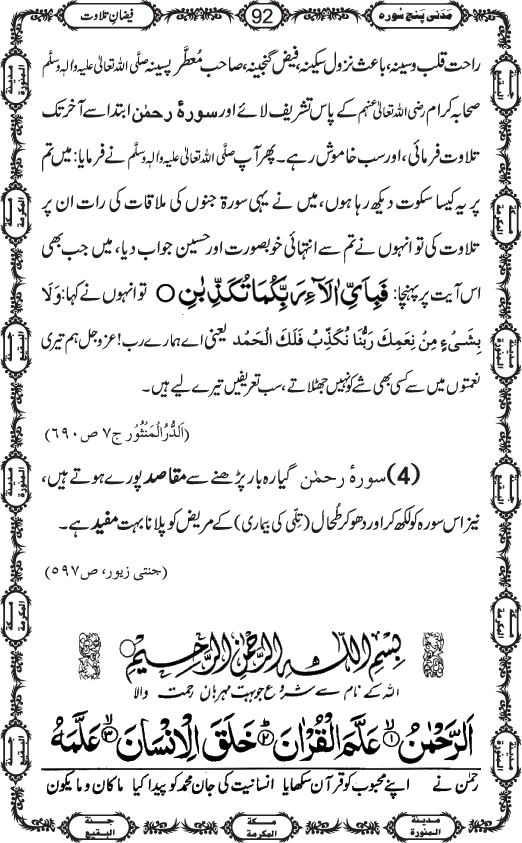 مَدَنی پَنج سُورہ
92
فیضانِ تلاوت
راحت قلب و سینہ، باعث نزول سکینہ، فیض گنجینہ، صاحب مُعطّر پسینہ صلی اللہ تعالیٰ علیہ والہٖ وسلَّم
صحابہ کرام رضی اللہ تعالیٰ عنہم کے پاس تشریف لائے اور سورۂ رحمٰن ابتدا سے آخر تک
تلاوت فرمائی، اور سب خاموش رہے۔ پھر آپ صلی اللہ تعالیٰ علیہ والہٖ وسلَّم نے فرمایا: میں تم
پر یہ کیسا سکوت دیکھ رہا ہوں، میں نے یہی سورۃ جنوں کی ملاقات کی رات ان پر
تلاوت کی تو انہوں نے تم سے انتہائی خوبصورت اور حسین جواب دیا، میں جب بھی
اس آیت پر پہنچا: فَبِاَیِّ اٰلَآءِ رَبِّكُمَا تُكَذِّبٰنِ ○ تو انہوں نے کہا: وَلَا
بِشَیْءٍ مِنْ نِعَمِكَ رَبَّنَا نُكَذِّبُ فَلَكَ الْحَمْدُ یعنی اے ہمارے رب! عزوجل ہم تیری
نعمتوں میں سے کسی بھی شے کو نہیں جھٹلاتے، سب تعریفیں تیرے لیے ہیں۔
(اَلدُّرُّالْمَنْثُوْر ج۷ ص ۶۹۰)
(4) سورۂ رحمٰن گیارہ بار پڑھنے سے مقاصد پورے ہوتے ہیں،
نیز اس سورہ کو لکھ کر اور دھو کر طُحال (تِلّی کی بیماری) کے مریض کو پلانا بہت مفید ہے۔
(جنتی زیور، ص ۵۹۷)
بِسْمِ اللّٰهِ الرَّحْمٰنِ الرَّحِیْمِ
اللہ کے نام سے شروع جو بہت مہربان رحمت والا
اَلرَّحْمٰنُۙ۱ عَلَّمَ الْقُرْاٰنَؕ۲ خَلَقَ الْاِنْسَانَۙ۳ عَلَّمَهُ
رحمٰن نے اپنے محبوب کو قرآن سکھایا انسانیت کی جان محمد کو پیدا کیا ماکان و مایکون
جنۃ البقیع
مکۃ المکرمۃ
مدینۃ المنورۃ